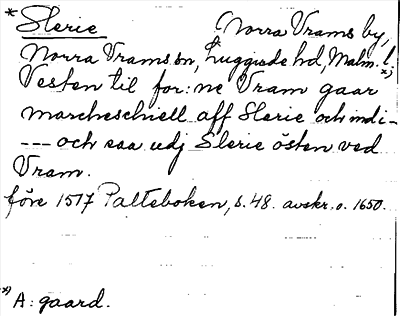 * Slerie (Norra Vrams by,
Norra Vrams sn, Luggude hd, Malm. l.
Vesten til for:ne Vram gaar x)
marcheschiell aff Slerie och indi-
--- och saa udj Slerie östen ved
Vram.
före 1517 Palteboken, s. 48. avskr. o. 1650.
x) A: gaard.